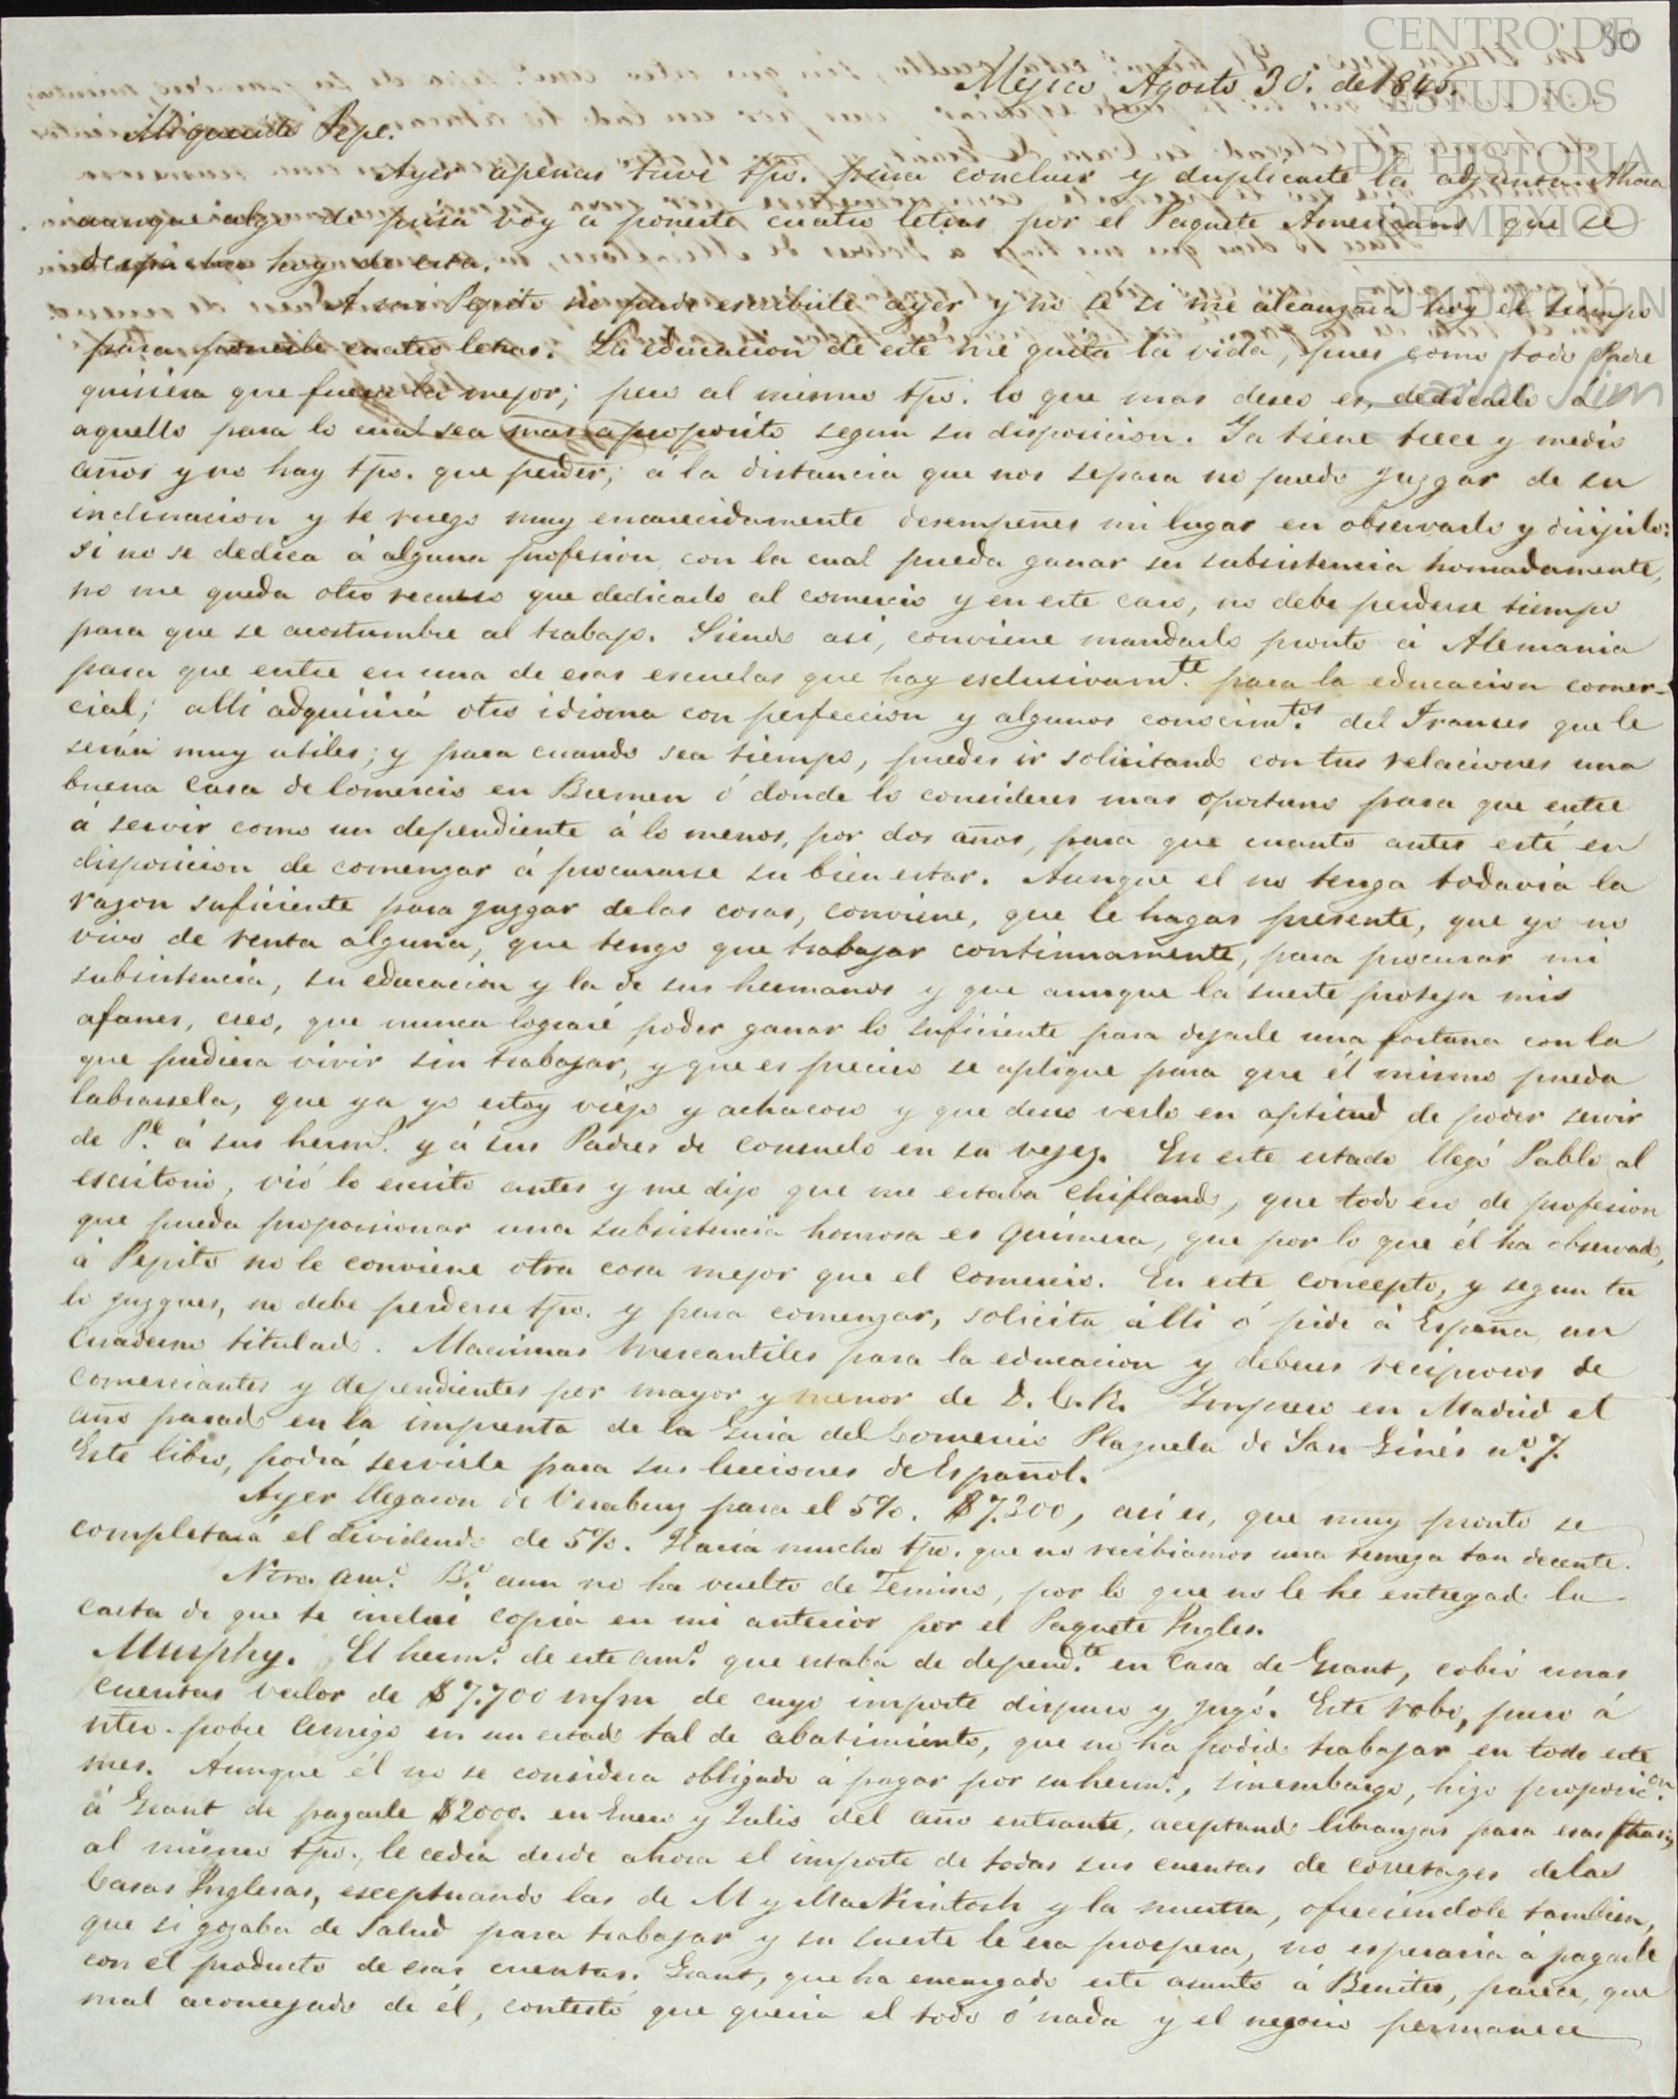 CENTRO DE
ESTUDIOS
DE HISTORIA
DE MEXICO
FUNDACIÓN
Carlos Slim
80
Mejico Agosto 30. de 1845.
Mi querido Pepe.
Ayer apenas tuve tpo. para concluir y duplicarte la adjunta. Ahora
aunque algo de prisa voy a ponerte cuatro letras por el Paquete Americano que se
despacha hoy de esta.
A mi Pepito no pude escribirle ayer y no se si me alcanzara hoy el tiempo
para ponerle cuatro letras. La educacion de este me quita la vida, pues como todo Padre
quisiera que fuera la mejor; pero al mismo tpo. lo que mas deseo es, dedicarlo á
aquello para lo cual sea mas aproposito segun su disposicion. Ya tiene trece y medio
años y no hay tpo. que perder; á la distancia que nos separa no puedo juzgar de su
inclinacion y te ruego muy encarecidamente desempeñes mi lugar en observarlo y dirijirlo:
si no se dedica á alguna profesion con la cual pueda ganar su subsistencia honradamente,
no me queda otro recurso que dedicarlo al comercio y en este caso, no debe perderse tiempo
para que se acostumbre al trabajo. Siendo asi, conviene mandarlo pronto á Alemania
para que entre en una de esas escuelas que hay esclusivamte. para la educacion comer-
cial; alli adquirirá otro idioma con perfeccion y algunos conocimtos. del Frances que le
serán muy utiles; y para cuando sea tiempo, puedes ir solicitando con tus relaciones una
buena Casa de Comercio en Bremen ó donde lo consideres mas oportuno para que entre
á servir como un dependiente á lo menos, por dos años, para que cuanto antes esté en
disposicion de comenzar á procurarse su bien estar. Aunque el no tenga todavia la
razon suficiente para juzgar de las cosas, conviene, que le hagas presente, que yo no
vivo de renta alguna, que tengo que trabajar continuamente, para procurar mi
subsistencia, su educacion y la de sus hermanos y que aunque la suerte proteja mis
afanes, creo, que nunca lograré poder ganar lo suficiente para dejarle una fortuna con la
que pudiera vivir sin trabajar, y que es preciso se aplique para que él mismo pueda
labrarsela, que ya yo estoy viejo y achacoso y que deseo verlo en aptitud de poder servir
de Pe. á sus herms. y á sus Padres de consuelo en su vejez. En este estado llegó Pablo al
escritorio, vió lo escrito antes y me dijo que me estaba chiflando, que todo eso de profesion
que pueda proporcionar una subsistencia honrosa es quimera, que por lo que él ha observado,
á Pepito no le conviene otra cosa mejor que el Comercio. En este concepto, y segun tu
lo juzgues, no debe perderse tpo. y para comenzar, solicita alli ó pide á España un
Cuaderno titulado. Maximas Mercantiles para la educacion y deberes reciprocos de
Comerciantes y dependientes por mayor y menor de D. C. R. Impreso en Madrid el
año pasado en la imprenta de la Guia del Comercio Plazuela de San Ginés no. 7.
Este libro, podrá servirle para sus lecciones de Español.
Ayer llegaron de Veracruz para el 5%. $7.300, asi es, que muy pronto se
completará el dividendo de 5%. Hacia mucho tpo. que no recibiamos una remeza tan decente.
Ntro. amo. Bo. aun no ha vuelto de Temino, por lo que no le he entregado la
carta de que te inclui copia en mi anterior por el Paquete Ingles.
Murphy. El hermo. de este amo. que estaba de dependte. en Casa de Grant, cobró unas
Cuentas valor de $7.700 m/m de cuyo importe dispuso y jugó. Este robo, puso á
ntro. pobre amigo en un estado tal de abatimiento, que no ha podido trabajar en todo este
mes. Aunque él no se considera obligado á pagar por su hermo., sinembargo, hizo proposicon.
á Grant de pagarle $2000. en Enero y Julio del año entrante, aceptando libranzas para esas fhas. y
al mismo tpo., le cedia desde ahora el importe de todas sus cuentas de corretages de las
Casas Inglesas, esceptuando las de M y MacKintosh y la nuestra, ofreciendole tambien,
que si gozaba de salud para trabajar y su suerte le era prospera, no esperaria á pagarle
con el producto de esas cuentas. Grant, que ha encargado este asunto á Benites, parece, que
mal aconcejado de él, contestó que queria el todo ó nada y el negocio permanece